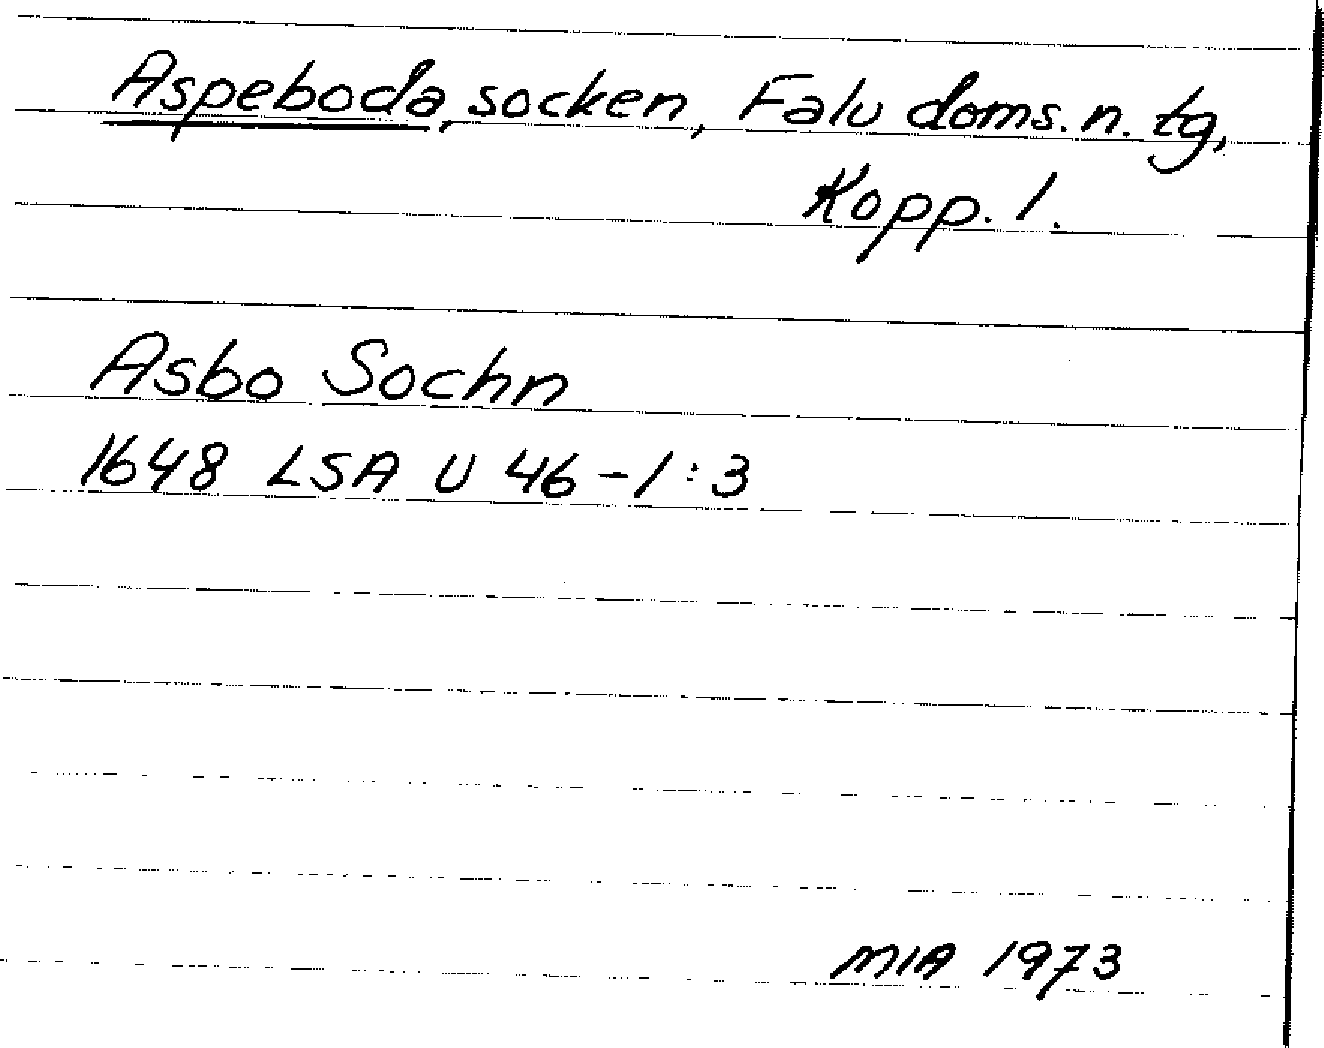 Aspeboda, socken, Falu doms. n. tg,
Kopp. l.
Asbo Sochn
1648 LSA U 46-1:3
MIA 1973